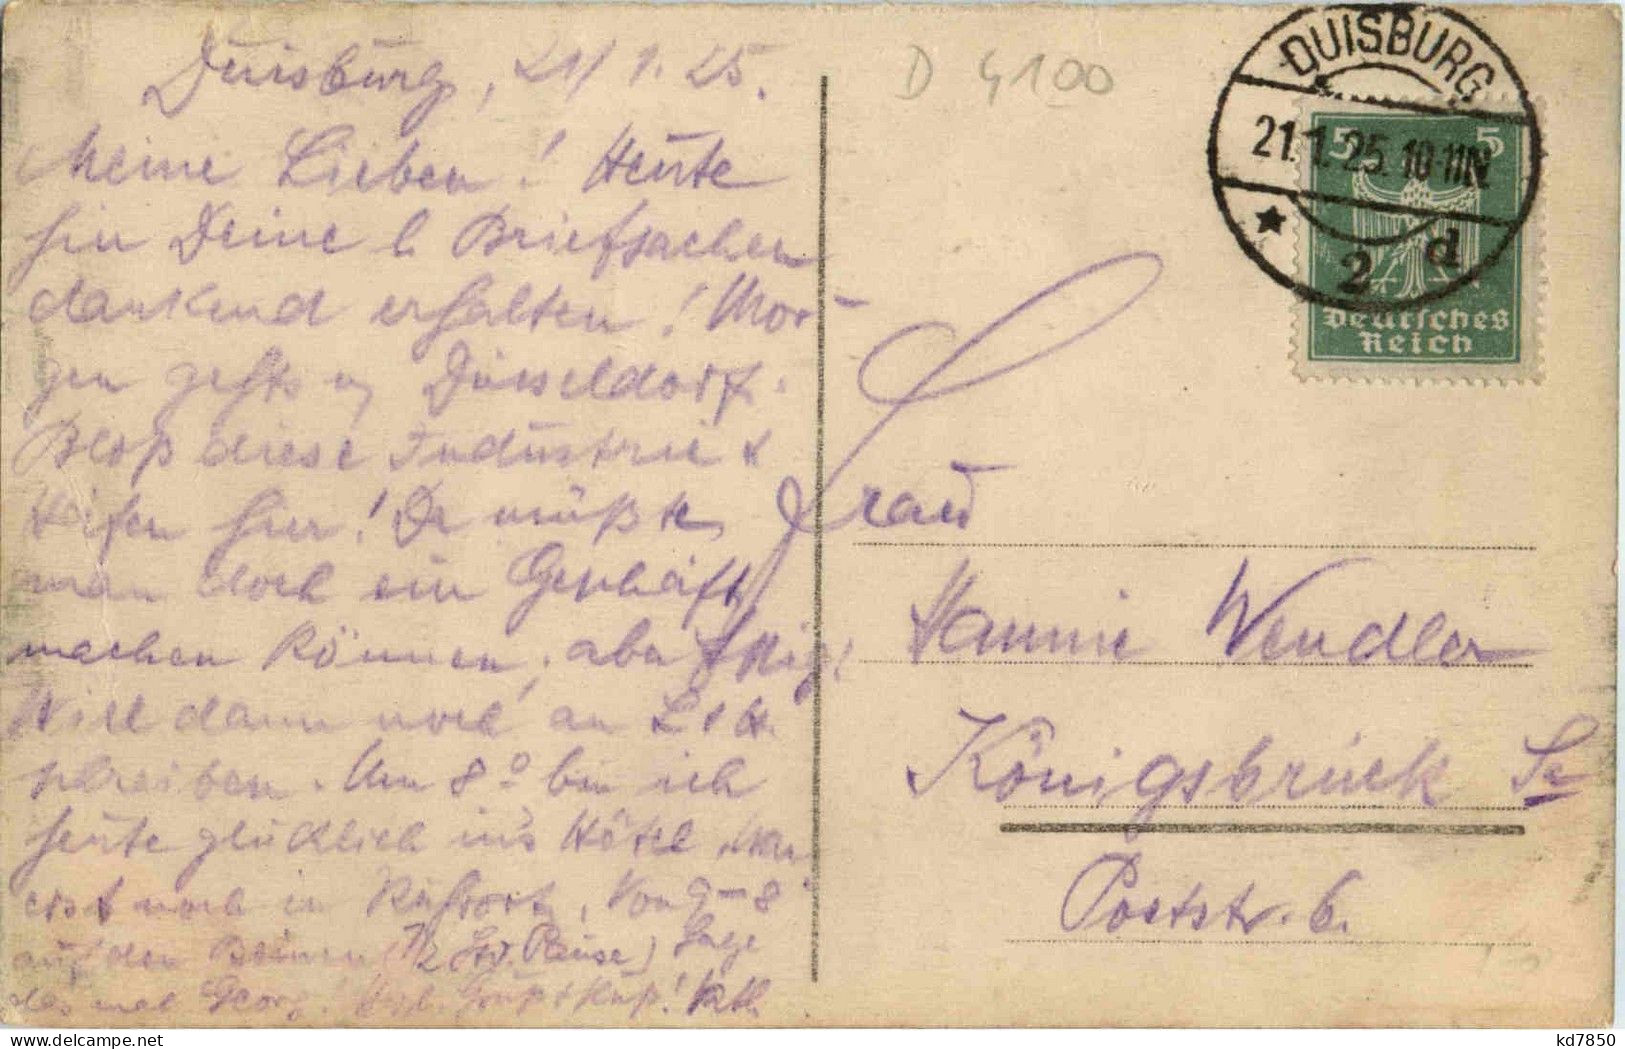 Duisburg, 21/1.25.
Meine Lieben! Heute
hier Deine l Briefsachen
dankend erhalten! Mor-
gen gehts n Düsseldorf.
Bloß diese Industrie &
Häfen hier! Da müßte
man doch ein Geschäft
machen können, aber
Will dann noch an
schreiben. Um 8° bin ich
heute glücklich ins Hotel, war
erst noch in Ruhrort. Von 9-8
auf den Beinen (1/2 Std. Pause) Sage
das mal Georg! Herzl. Gruß + Kuß!
D 4100
DUISBURG
21.1.25.10-11N
* 2 d
5 5
Deutsches
Reich
Frau
Hannie Wendler
Königsbrück Sa
Poststr. 6.
kd7850